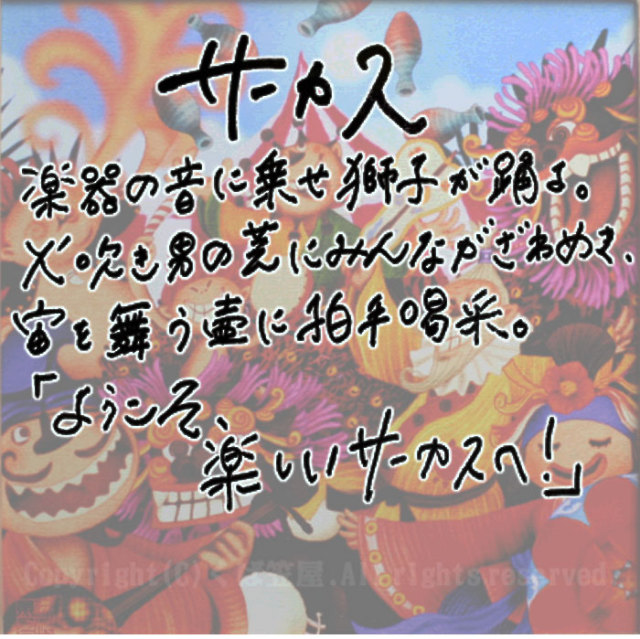 サーカス
楽器の音に乗せ獅子が踊る。
火吹き男の芸にみんながざわめき、
宙を舞う壷に拍手喝采。
「ようこそ、
楽しいサーカスへ!」
Copyright(C) 屋.All rights reserved